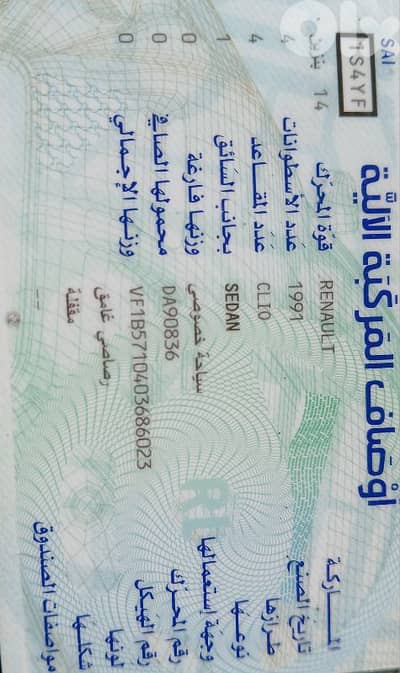 SAI
1S4YF
أوصاف المركبة الآلية
الماركة RENAULT قوة المحرك 14 بنزين
تاريخ الصنع 1991 عدد الأسطوانات 4
طرازها CLIO عدد المقاعد 4
نوعها SEDAN بجانب السائق 1
وجهة إستعمالها سياحة خصوصي وزنها فارغة 0
رقم المحرك DA90836 محمولها الصافي 0
رقم الهيكل VF1B5710403686023 وزنها الإجمالي 0
لونها رصاصي غامق
شكلها مقفلة
مواصفات الصندوق --